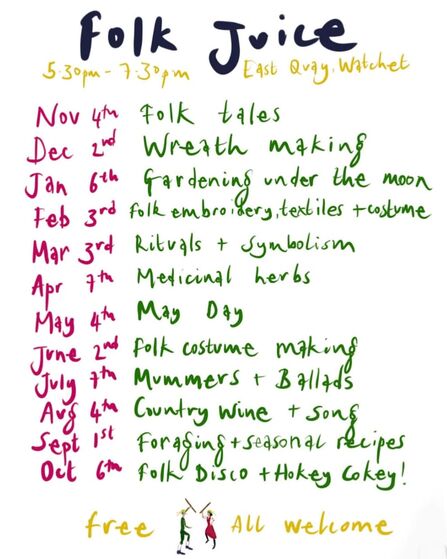 Folk Juice
5.30pm - 7.30pm East Quay, Watchet
Nov 4th Folk tales
Dec 2nd Wreath making
Jan 6th Gardening under the moon
Feb 3rd folk embroidery, textiles + costume
Mar 3rd Rituals + symbolism
Apr 7th Medicinal herbs
May 4th May Day
June 2nd folk costume making
July 7th Mummers + Ballads
Aug 4th Country Wine + song
Sept 1st Foraging + seasonal recipes
Oct 6th Folk Disco + Hokey Cokey!
free All welcome